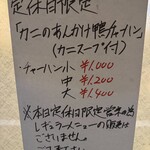 定休日限定
「カニのあんかけ鴨チャーハン」
(カニスープ付)
チャーハン小 ¥1.000
中 ¥1.200
大 ¥1.400
※本日定休日限定営業の為
レギュラーメニューの販売は
ございません